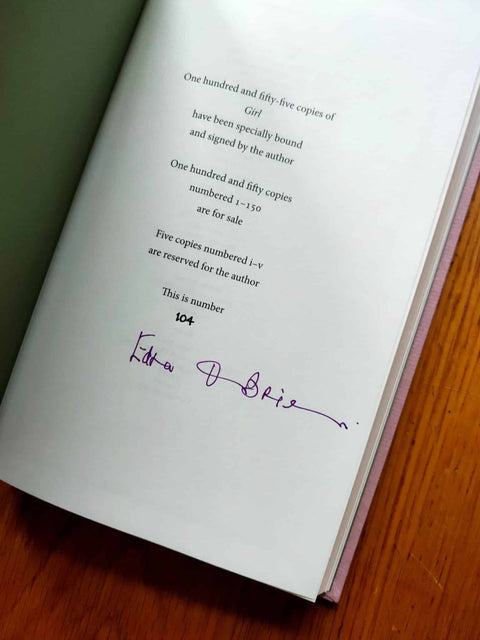 One hundred and fifty-five copies of
Girl
have been specially bound
and signed by the author
One hundred and fifty copies
numbered 1–150
are for sale
Five copies numbered i–v
are reserved for the author
This is number
104
Edna O'Brien